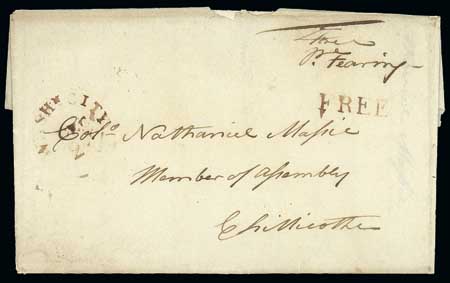 Free
P. Fearing
FREE
WASH. CITY
Colo. Nathaniel Massie
Member of Assembly
Chillicothe